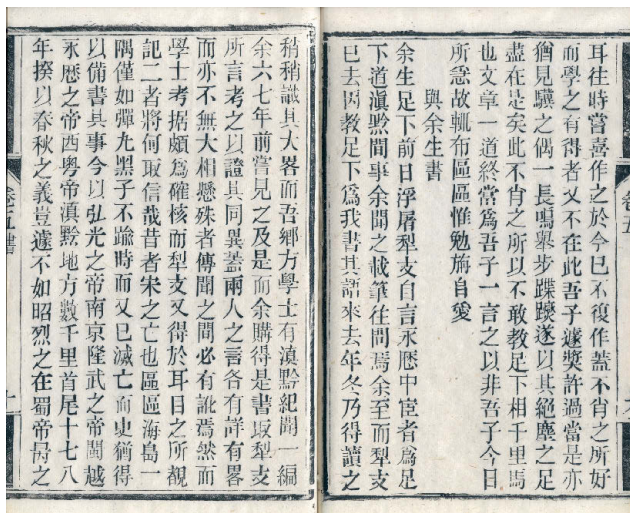 耳往時嘗喜作之於今已不復作蓋不肖之所好
而學之有得者又不在此吾子遽獎許過當是亦
猶見驥之偶一長鳴舉步蹀躞遂以其絕塵之足
盡在是矣此不肖之所以不敢教足下相千里馬
也文章一道終當爲吾子一言之以非吾子今日
所急故輒布區區惟勉旃自愛
與余生書
余生足下前日浮屠犁支自言永歷中宦者爲足
下道滇黔間事余聞之載筆往問焉余至而犁支
已去因教足下爲我書其語來去年冬乃得讀之
稍稍識其大畧而吾鄉方學士有滇黔紀聞一編
余六七年前嘗見之及是而余購得是書取犁支
所言考之以證其同異蓋兩人之言各有詳有畧
而亦不無大相懸殊者傳聞之間必有訛焉然而
學士考据頗爲確核而犁支又得於耳目之所覩
記二者將何取信哉昔者宋之亡也區區海島一
隅僅如彈丸黑子不踰時而又已滅亡而史猶得
以備書其事今以弘光之帝南京隆武之帝閩越
永歷之帝西粵帝滇黔地方數千里首尾十七八
年揆以春秋之義豈遽不如昭烈之在蜀帝昺之
卷五書